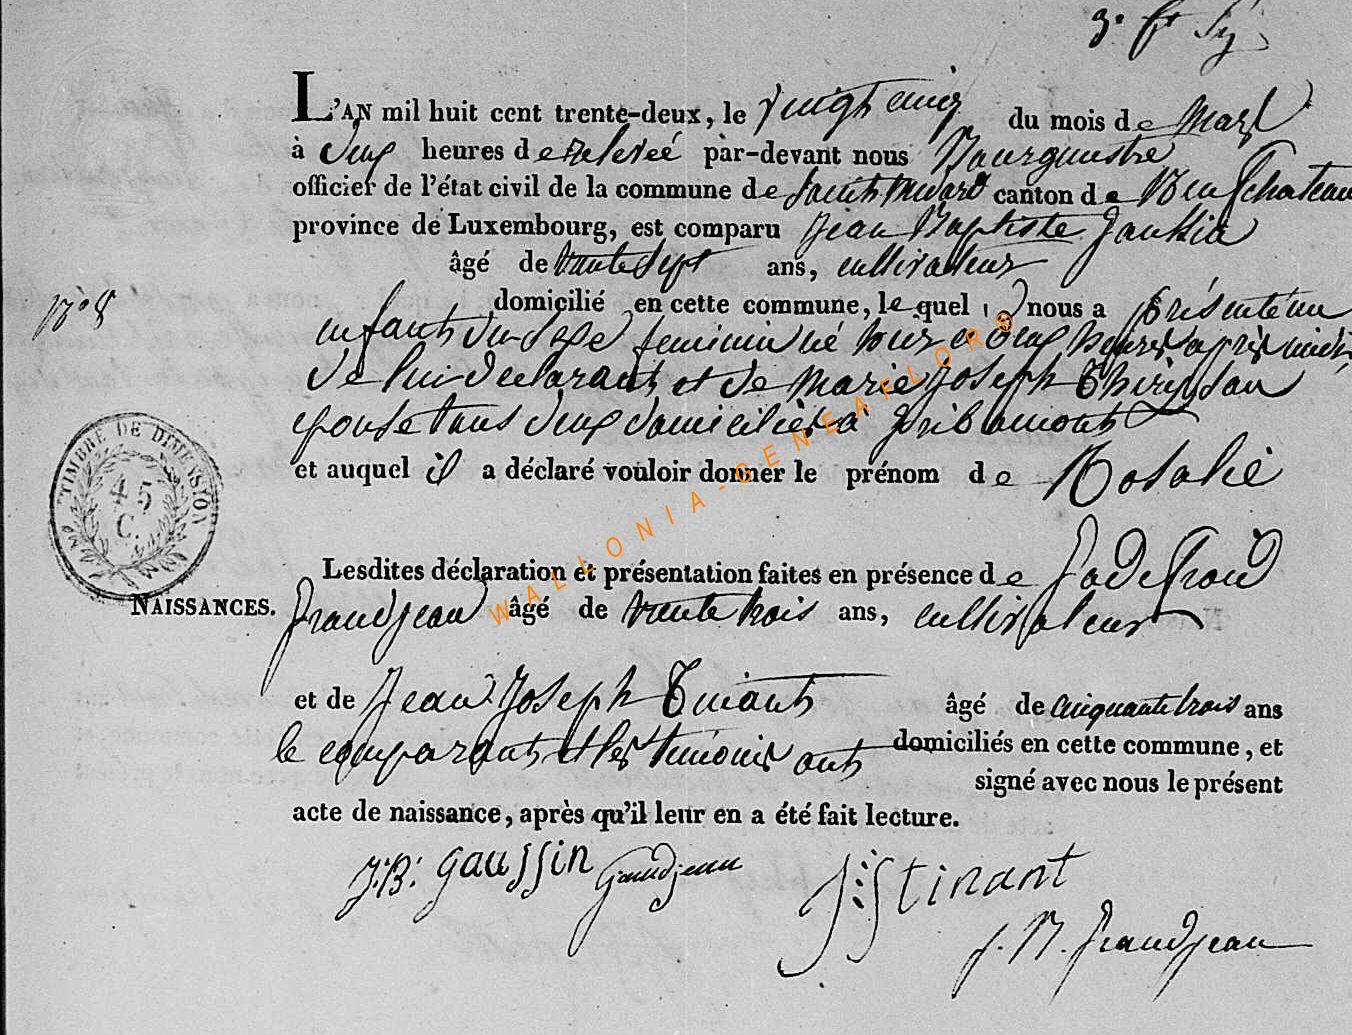 3e ft Sy
L'AN mil huit cent trente-deux, le vingt cinq du mois de Mars
à deux heures de relevée par-devant nous Bourguestre
officier de l'état civil de la commune de Saint Médard canton de Neufchateau
province de Luxembourg, est comparu Jean Baptiste Gaussin
âgé de trente sept ans, cultivateur
N° 8
domicilié en cette commune, lequel nous a présenté un
enfant du sexe feminin né hier a deux heures après midi,
de lui declarant, et de Marie Joseph
epouse tous deux domiciliés à Gribomont
et auquel il a déclaré vouloir donner le prénom de Rosalie
TIMBRE DE DIMENSION
45
C.
Lesdites déclaration et présentation faites en présence de Godefroid
NAISSANCES.
Grandjean âgé de trente trois ans, cultivateur
et de Jean Joseph Tinant âgé de cinquante trois ans
le comparant et les temoins ont domiciliés en cette commune, et
signé avec nous le présent
acte de naissance, après qu'il leur en a été fait lecture.
J:B: gaussin Grandjean J:J:tinant
J. N. Grandjean
WALLONIA-GENEAFLOR@